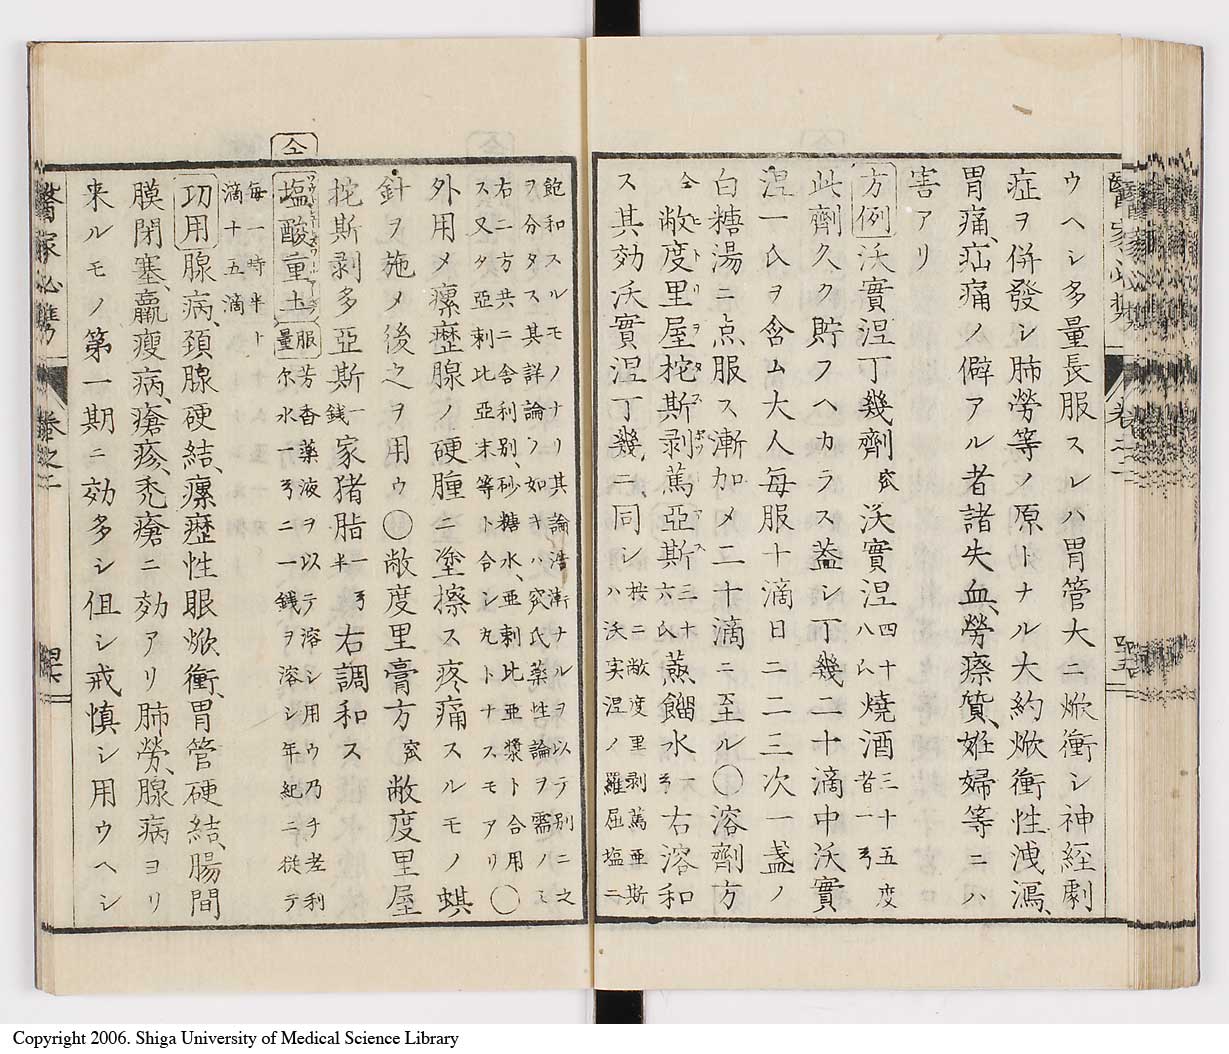 ウヘシ多量長服スレハ胃管大ニ焮衝シ神経劇
症ヲ併發シ肺勞等ノ原トナル大約焮衝性洩瀉、
胃痛、疝痛ノ僻アル者諸失血、勞瘵質、姙婦等ニハ
害アリ
方例 沃實涅丁幾劑 沃實涅 四十八氏 燒酒 三十五度者一弓
此劑久ク貯フヘカラス蓋シ丁幾二十滴中沃實
涅一氏ヲ含ム大人毎服十滴日二二三次一盞ノ
白糖湯ニ点服ス漸加メ二十滴ニ至ル〇溶劑方
仝 敝度里屋抡斯剥篤亞斯 三十六氏 蒸餾水 一弓 右溶和
ス其効沃實涅丁幾ニ同シ 共ニ敝度里剥篤亜斯ハ沃実涅ノ羅屈塩ニ
飽和スルモノナリ其論浩漸ナルヲ以テ別ニ之
ヲ分タス其詳論ノ如キハ窊氏薬性論ヲ需ノミ
右二方共ニ舎利別、砂糖水、亜剌比亜漿ト合用〇
ス又タ亞剌比亞末等ト合シ丸トナスモアリ
外用メ瘰癧腺ノ硬腫ニ塗擦ス疼痛スルモノ蜞
針ヲ施メ後之ヲ用ウ〇敝度里膏方 窊 敝度里屋
抡斯剥多亞斯 一銭 家猪脂 一弓半 右調和ス
仝
塩酸重土 服量 芳香藥液ヲ以テ溶シ用ウ乃チ老利
尓水一弓ニ一銭ヲ溶シ年紀ニ従テ
毎一時半ト
滴十五滴
功用 腺病、頚腺硬結、瘰癧性眼焮衝、胃管硬結、腸間
膜閉塞、羸瘦病、瘡疹、禿瘡ニ効アリ肺勞、腺病ヨリ
来ルモノ第一期ニ効多シ但シ戒慎シ用ウヘシ
醫家必携 卷之二
Copyright 2006. Shiga University of Medical Science Library